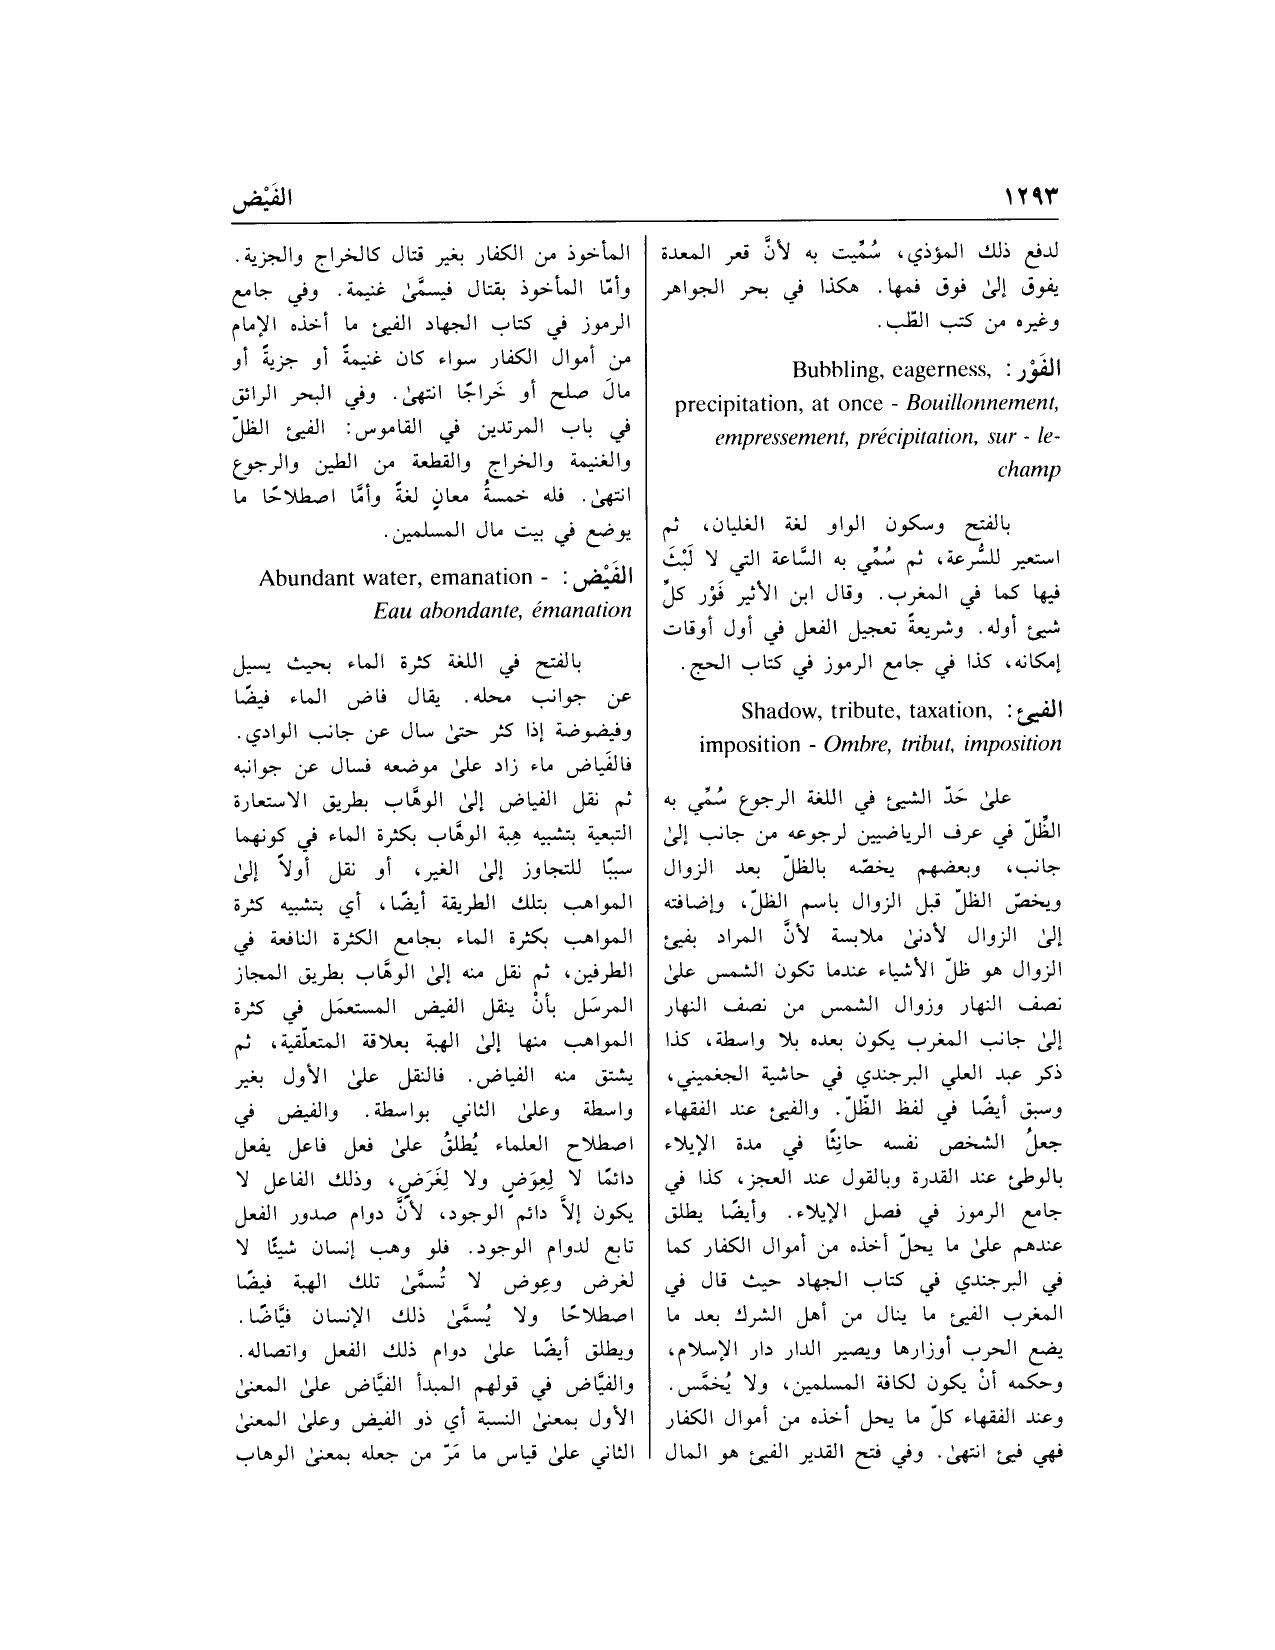 ١٢٩٣
الفَيْض
لدفع ذلك المؤذي، سُمِّيت به لأنَّ قعر المعدة
يفوق إلىٰ فوق فمها. هكذا في بحر الجواهر
وغيره من كتب الطّب.
الفَوْر: Bubbling, eagerness,
precipitation, at once - Bouillonnement,
empressement, précipitation, sur - le-
champ
بالفتح وسكون الواو لغة الغليان، ثم
استعير للسُّرعة، ثم سُمِّي به السَّاعة التي لا لَبْثَ
فيها كما في المغرب. وقال ابن الأثير فَوْر كلِّ
شيئ أوله. وشريعةً تعجيل الفعل في أول أوقات
إمكانه، كذا في جامع الرموز في كتاب الحج.
الفيئ: Shadow, tribute, taxation,
imposition - Ombre, tribut, imposition
علىٰ حَدّ الشيئ في اللغة الرجوع سُمِّي به
الظِّلّ في عرف الرياضيين لرجوعه من جانب إلىٰ
جانب، وبعضهم يخصّه بالظلّ بعد الزوال
ويخصّ الظلّ قبل الزوال باسم الظلّ، وإضافته
إلىٰ الزوال لأدنىٰ ملابسة لأنَّ المراد بفيئ
الزوال هو ظلّ الأشياء عندما تكون الشمس علىٰ
نصف النهار وزوال الشمس من نصف النهار
إلىٰ جانب المغرب يكون بعده بلا واسطة، كذا
ذكر عبد العلي البرجندي في حاشية الجغميني،
وسبق أيضًا في لفظ الظّلّ. والفيئ عند الفقهاء
جعلُ الشخص نفسه حانِثًا في مدة الإيلاء
بالوطئ عند القدرة وبالقول عند العجز، كذا في
جامع الرموز في فصل الإيلاء. وأيضًا يطلق
عندهم علىٰ ما يحلّ أخذه من أموال الكفار كما
في البرجندي في كتاب الجهاد حيث قال في
المغرب الفيئ ما ينال من أهل الشرك بعد ما
يضع الحرب أوزارها ويصير الدار دار الإسلام،
وحكمه أنْ يكون لكافة المسلمين، ولا يُخمَّس.
وعند الفقهاء كلّ ما يحل أخذه من أموال الكفار
فهي فيئ انتهىٰ. وفي فتح القدير الفيئ هو المال
المأخوذ من الكفار بغير قتال كالخراج والجزية.
وأمّا المأخوذ بقتال فيسمَّىٰ غنيمة. وفي جامع
الرموز في كتاب الجهاد الفيئ ما أخذه الإمام
من أموال الكفار سواء كان غنيمةً أو جزيةً أو
مالَ صلح أو خَراجًا انتهىٰ. وفي البحر الرائق
في باب المرتدين في القاموس: الفيئ الظلّ
والغنيمة والخراج والقطعة من الطين والرجوع
انتهىٰ. فله خمسةُ معانٍ لغةً وأمَّا اصطلاحًا ما
يوضع في بيت مال المسلمين.
الفَيْض: Abundant water, emanation -
Eau abondante, émanation
بالفتح في اللغة كثرة الماء بحيث يسيل
عن جوانب محله. يقال فاض الماء فيضًا
وفيضوضة إذا كثر حتىٰ سال عن جانب الوادي.
فالفَياض ماء زاد علىٰ موضعه فسال عن جوانبه
ثم نقل الفياض إلىٰ الوهَّاب بطريق الاستعارة
التبعية بتشبيه هِبة الوهَّاب بكثرة الماء في كونهما
سببًا للتجاوز إلىٰ الغير، أو نقل أولاً إلىٰ
المواهب بتلك الطريقة أيضًا، أي بتشبيه كثرة
المواهب بكثرة الماء بجامع الكثرة النافعة في
الطرفين، ثم نقل منه إلىٰ الوهَّاب بطريق المجاز
المرسَل بأنْ ينقل الفيض المستعمَل في كثرة
المواهب منها إلىٰ الهبة بعلاقة المتعلّقية، ثم
يشتق منه الفياض. فالنقل علىٰ الأول بغير
واسطة وعلىٰ الثاني بواسطة. والفيض في
اصطلاح العلماء يُطلقُ علىٰ فعل فاعل يفعل
دائمًا لا لِعِوَضٍ ولا لِغَرَضٍ، وذلك الفاعل لا
يكون إلاَّ دائم الوجود، لأنَّ دوام صدور الفعل
تابع لدوام الوجود. فلو وهب إنسان شيئًا لا
لغرض وعِوض لا تُسمَّىٰ تلك الهبة فيضًا
اصطلاحًا ولا يُسمَّىٰ ذلك الإنسان فيَّاضًا.
ويطلق أيضًا علىٰ دوام ذلك الفعل واتصاله.
والفيَّاض في قولهم المبدأ الفيَّاض علىٰ المعنىٰ
الأول بمعنىٰ النسبة أي ذو الفيض وعلىٰ المعنىٰ
الثاني علىٰ قياس ما مَرّ من جعله بمعنىٰ الوهاب